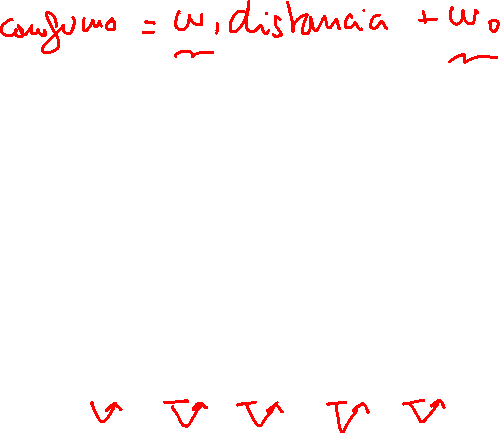 consumo = w₁ distancia + w₀